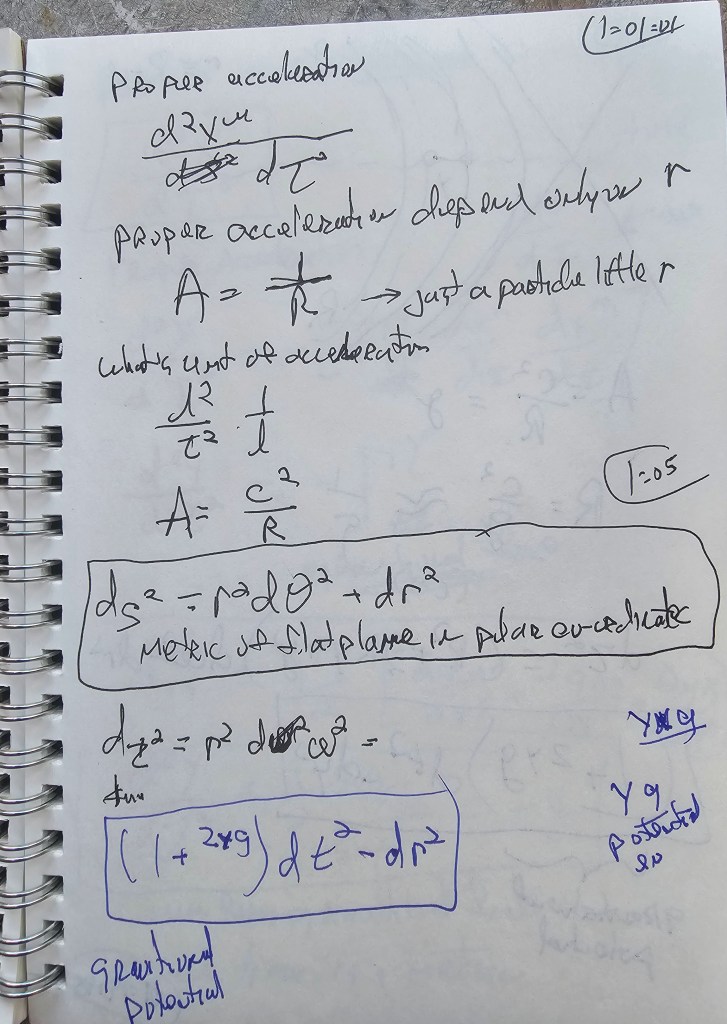 (1=01=01
Proper acceleration
d²x^μ
dτ²
proper acceleration depend only on r
A = 1/R → just a particle little r
what's unit of acceleration
l²/τ² 1/l
1=05
A = c²/R
ds² = r²dθ² + dr²
Metric of flat plane in polar co-ordinate
dτ² = r² dω² =
y g
(1 + 2yg) dt² - dr²
yg
potential
gravitional
potential